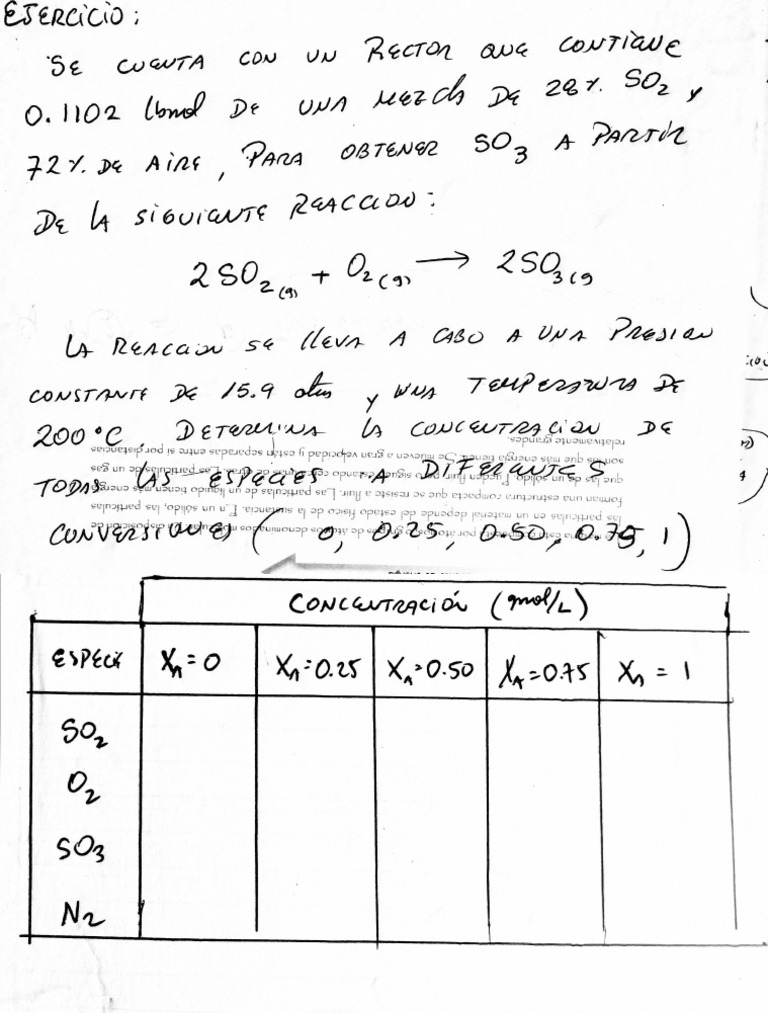 EJERCICIO:
SE CUENTA CON UN RECTOR QUE CONTIENE
0.1102 lbmol DE UNA MEZCLA DE 28% SO2 y
72% DE AIRE, PARA OBTENER SO3 A PARTIR
DE LA SIGUIENTE REACCION:
2SO2(g) + O2(g) → 2SO3(g
LA REACCION SE LLEVA A CABO A UNA PRESION
CONSTANTE DE 15.9 atm y UNA TEMPERATURA DE
200°C DETERMINA LA CONCENTRACION DE
TODAS LAS ESPECIES A DIFERENTES
CONVERSIONES ( 0, 0.25, 0.50, 0.75, 1)
CONCENTRACIÓN (gmol/L)
ESPECIE XA=0 XA=0.25 XA=0.50 XA=0.75 XA=1
SO2
O2
SO3
N2